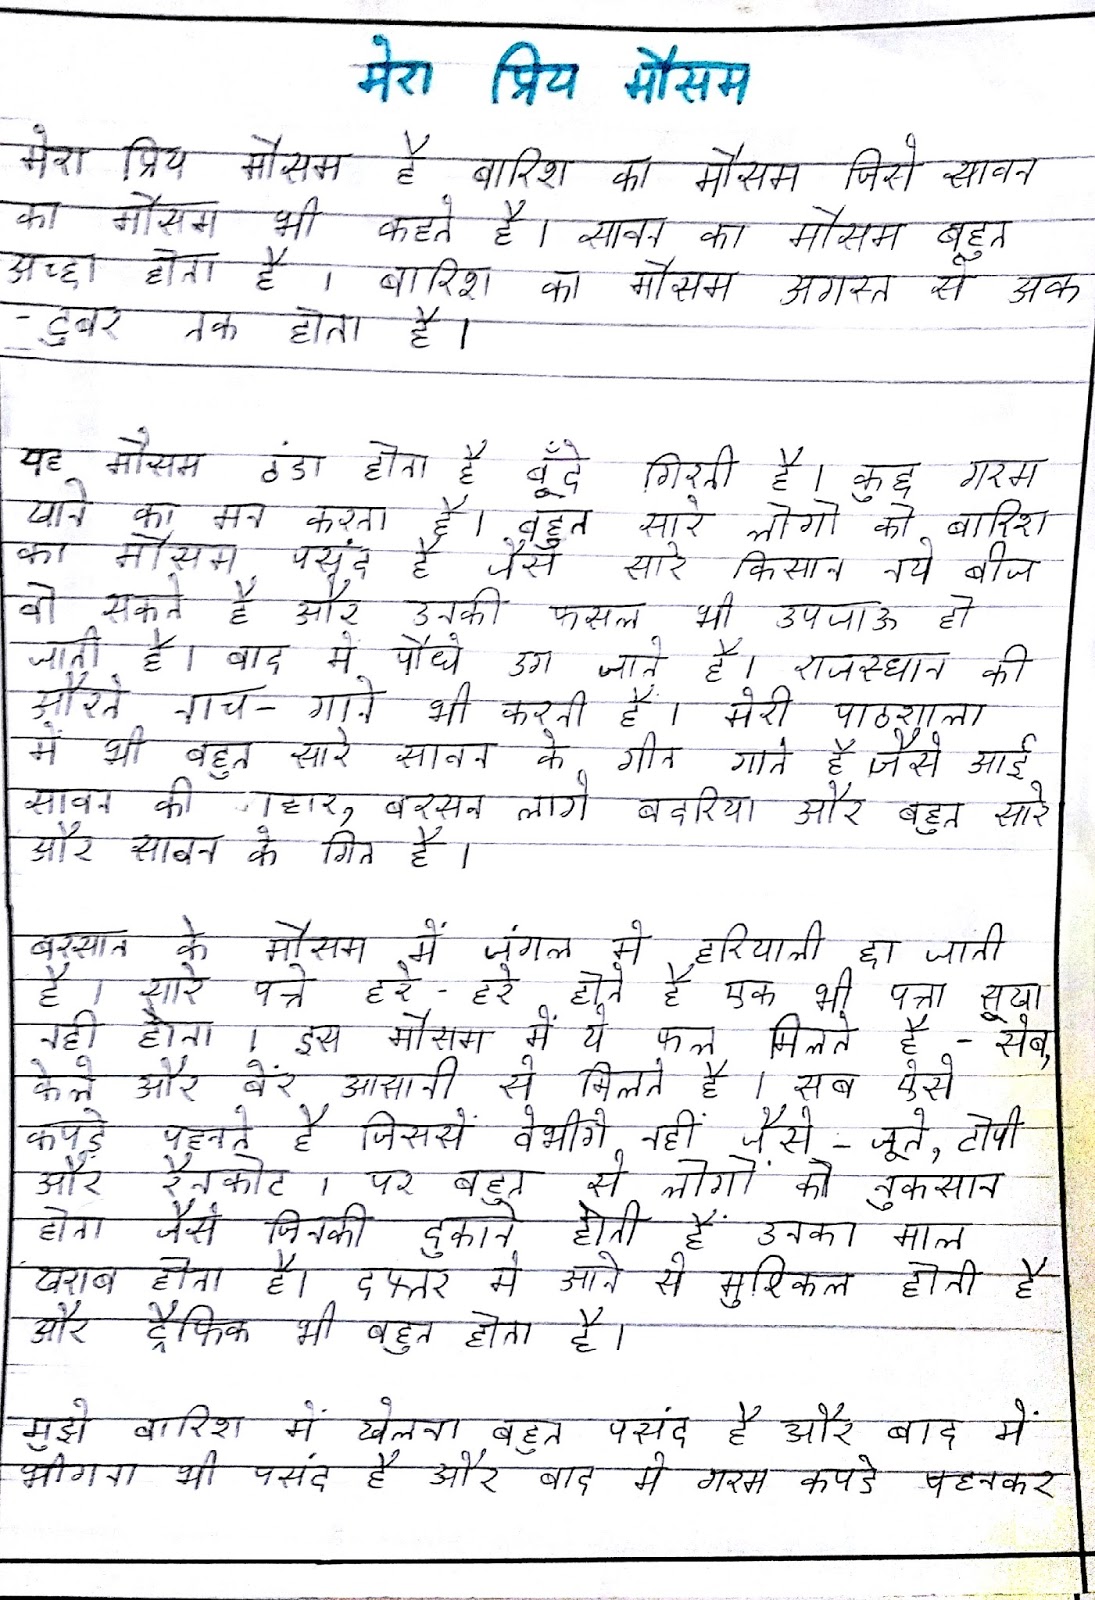 मेरा प्रिय मौसम
मेरा प्रिय मौसम है बारिश का मौसम जिसे सावन
का मौसम भी कहते है। सावन का मौसम बहुत
अच्छा होता है। बारिश का मौसम अगस्त से अक
-टुबर तक होता है।
यह मौसम ठंडा होता है बूँदे गिरती है। कुछ गरम
खाने का मन करता है। बहुत सारे लोगो को बारिश
का मौसम पसंद है जैसे सारे किसान नये बीज
बो सकते है और उनकी फसल भी उपजाऊ हो
जाती है। बाद में पौधे उग जाते है। राजस्थान की
औरते नाच-गाने भी करती हैं। मेरी पाठशाला
में भी बहुत सारे सावन के गीत गाते है जैसे आई
सावन की बरसन लागे बदरिया और बहुत सारे
और सावन के गित है।
बरसात के मौसम में जंगल मे हरियाली छा जाती
है। सारे पत्ते हरे-हरे होते है एक भी पत्ता सूखा
नही होता। इस मौसम में ये फल मिलते है - सेब,
केले और बेर आसानी से मिलते है। सब ऐसे
कपड़े पहनते है जिससें वेभीगे नहीं जैसे - जूते, टोपी
और रैनकोट। पर बहुत से लोगों को नुकसान
होता जैसे जिनकी दुकाने होती हैं उनका माल
खराब होता है। दफ्तर मे आने से मुश्किल होती है
और ट्रैफिक भी बहुत होता है।
मुझे बारिश में खेलना बहुत पसंद है और बाद में
भीगना भी पसंद है और बाद मे गरम कपडे पहनकर